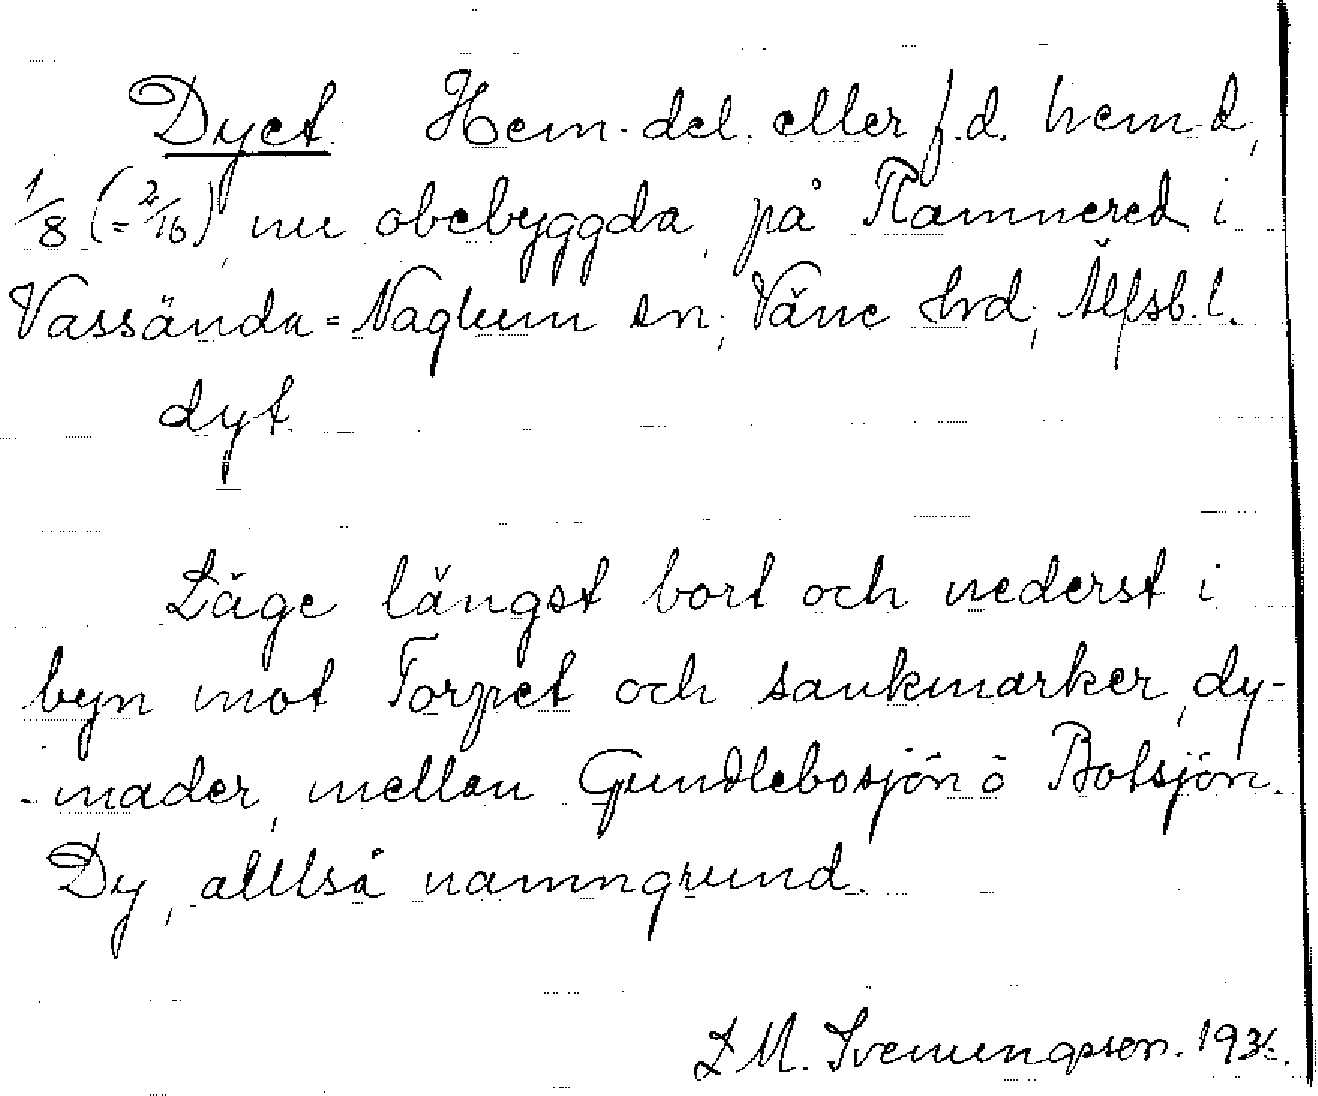 Dyet. Hem.del. eller f.d. hem.d,
1/8 (=2/16), nu obebyggda, på Ramnered i
Vassända=Naglum sn; Väne hrd; Älfsb.l.
dyt.
Läge längst bort och nederst i
byn mot Torpet och sankmarker, dy-
-mader, mellan Gundlebosjön o Botsjön.
Dy, alltså namngrund.
L M. Svenungsson.